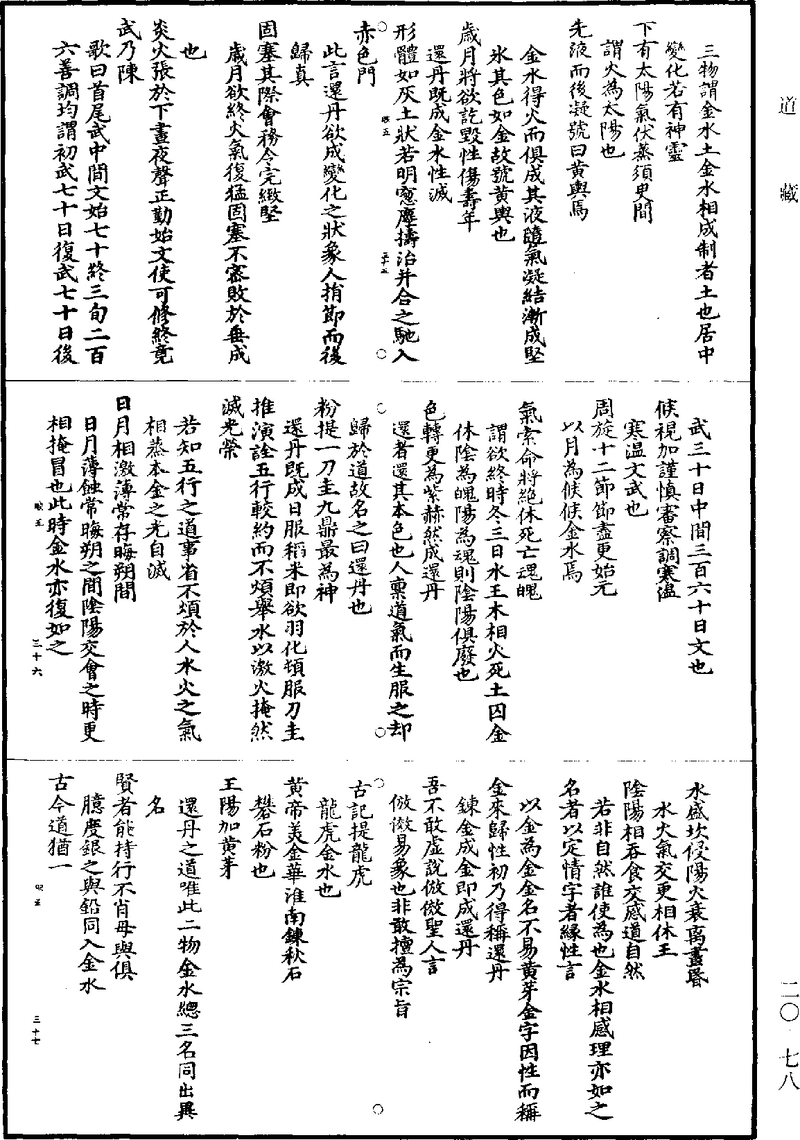 道藏
三物謂金水土金水相成制者土也居中
變化若有神靈
下有太陽氣伏蒸須臾間
謂火為太陽也
先液而後凝號曰黃輿焉
金水得火而俱成其液隨氣凝結漸成堅
氷其色如金故號黃輿也
歲月將欲訖毀性傷壽年
還丹既成金水性滅
形體如灰土狀若明窻塵擣治并合之馳入
赤色門
此言還丹欲成變化之狀象人揹節而後
歸真
固塞其際會務令完緻堅
歲月欲終火氣復猛固塞不審敗於垂成
也
炎火張於下晝夜聲正勤始文使可修終竟
武乃陳
歌曰首尾武中間文始七十終三旬二百
六善調均謂初武七十日復武七十日後
武三十日中間三百六十日文也
候視加謹慎審察調寒溫
寒温文武也
周旋十二節節盡更始元
以月為候候金水焉
氣索命將絕休死亡魂魄
謂欲終時冬三日水王木相火死土囚金
休陰為魄陽為魂則陰陽俱廢也
色轉更為紫赫然成還丹
還者還其本色也人稟道氣而生服之却
歸於道故名之曰還丹也
粉提一刀圭九鼎最為神
還丹既成日服稻米即欲羽化頓服刀圭
推演詮五行較約而不煩舉水以激火掩然
滅光榮
若知五行之道事省不煩於人水火之氣
相蒸本金之光自滅
日月相激薄常存晦朔間
日月薄蝕常晦朔之間陰陽交會之時更
相掩冒也此時金水亦復如之
三十六
水盛坎侵陽火衰离晝昏
水火氣交更相休王
陰陽相吞食交感道自然
若非自然誰使為也金水相感理亦如之
名者以定情字者緣性言
以金為金金名不易黃芽金字因性而稱
金來歸性初乃得稱還丹
鍊金成金即成還丹
吾不敢虛說倣傚聖人言
倣傚易象也非敢擅為宗旨
古記提龍虎
龍虎金水也
黃帝美金華淮南鍊秋石
礬石粉也
王陽加黃芽
還丹之道唯此二物金水總三名同出異
名
賢者能持行不肖毋與俱
臆度銀之與鉛同入金水
古今道猶一
三十七
二〇 七八